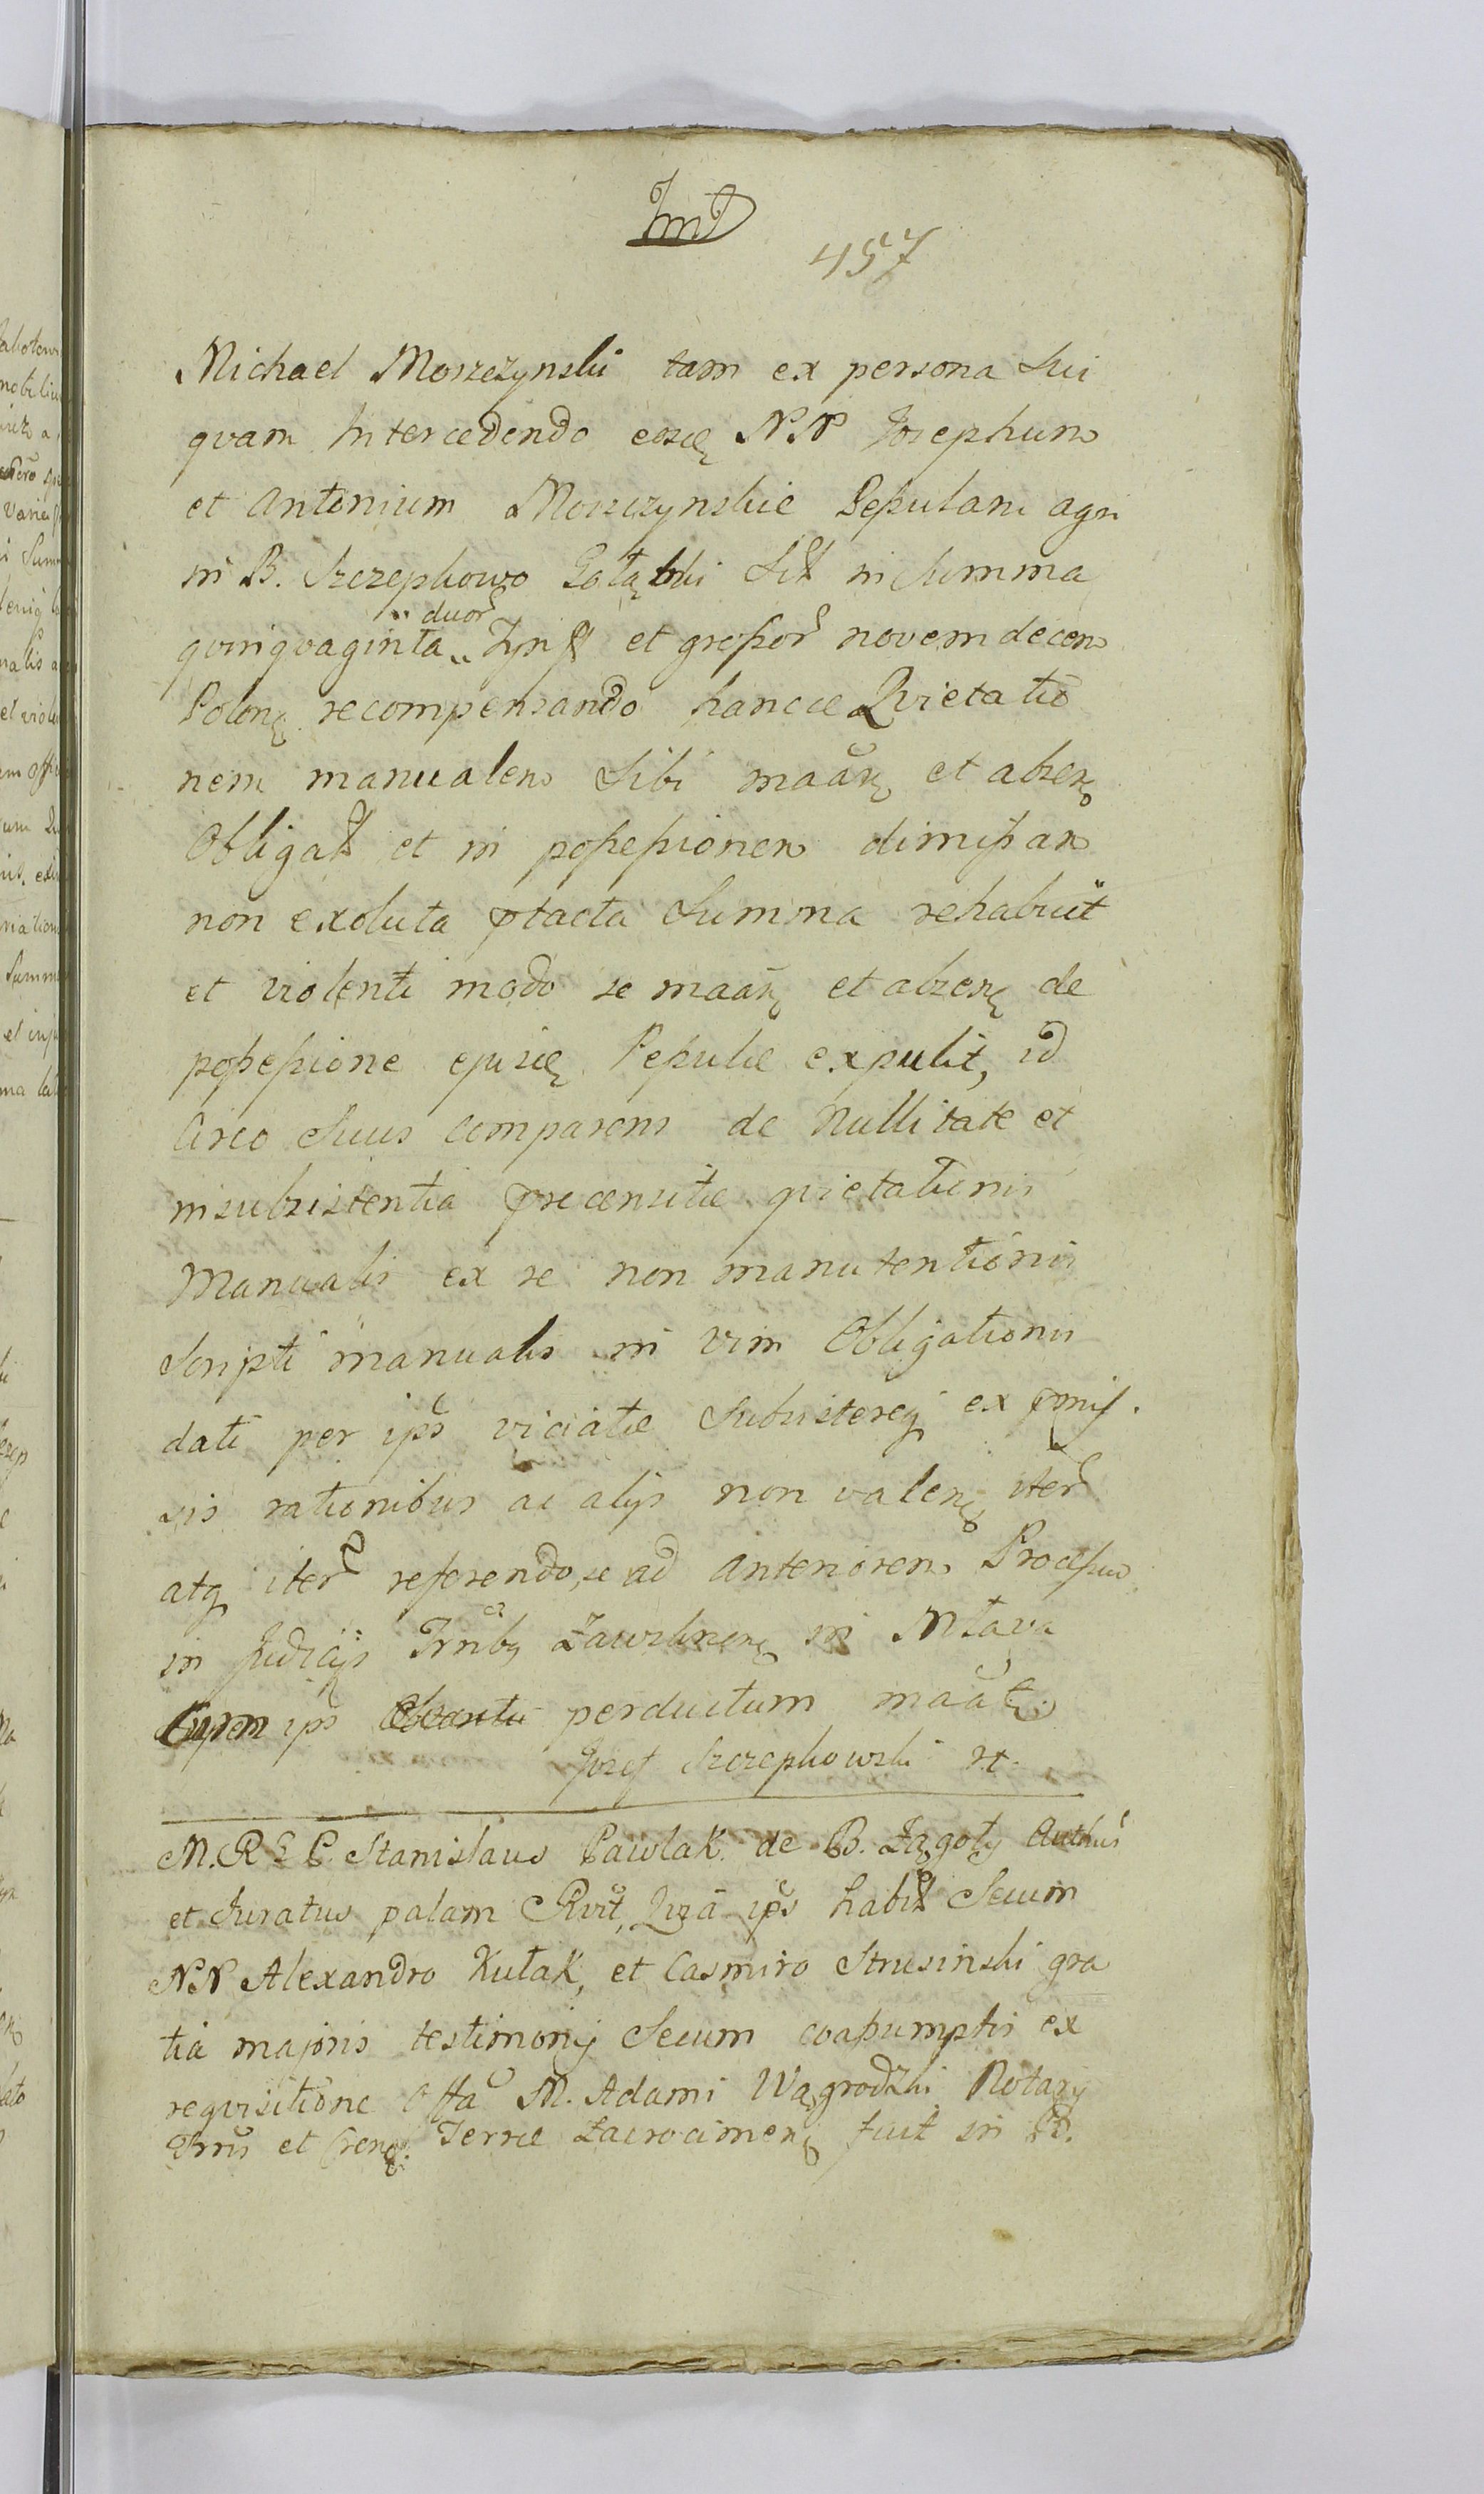 457
Michael Moszczynski tam ex persona Sui
qvam Intercedendo eoscę NN Josephum
et Antonium Moszczynskie Lepulam agri
in B. Szczepkowo Gołąbki Sit in Summa
qvinqvaginta duor Zyn et grossor novem decem
Polonę recompensando hancce Qvietatio
nem manualem Sibi maañ et absenę
Obligat et in possessionem dimissam
non exoluta ptacta Summa rehabuit
et violenti modo se maañ et absenę de
possessione ejuscę Lepulæ expulit, id
Circo Suus Comparens de Nullitate et
insubsistentia præcensitæ qvietationis
Manualis ex re non manutentionis
Scripti manualis in vim Obligationis
dati per ips viciatæ Subsistereq ex pmis.
sis rationibus ac alijs non valenę iter
atq iter referendo, se ad Anteriorem Processum
in Judicijs Trrñbq Zawskrenę in Mława
ips perductum maat
Jozef Szczepkowski rt
M. R. G. C. Stanislaus Pawlak de B. Zągoty Authus
et Juratus palam Rvit, Qva ips habit Secum
NN Alexandro Kułak, et Casimiro Strusinski gra
tia majoris testimonij Secum coassumptis ex
reqvisitione Offa M. Adami Wągrodzki Notarij
Trris et Crenę. Terræ Zacrocimenę fuit in B.